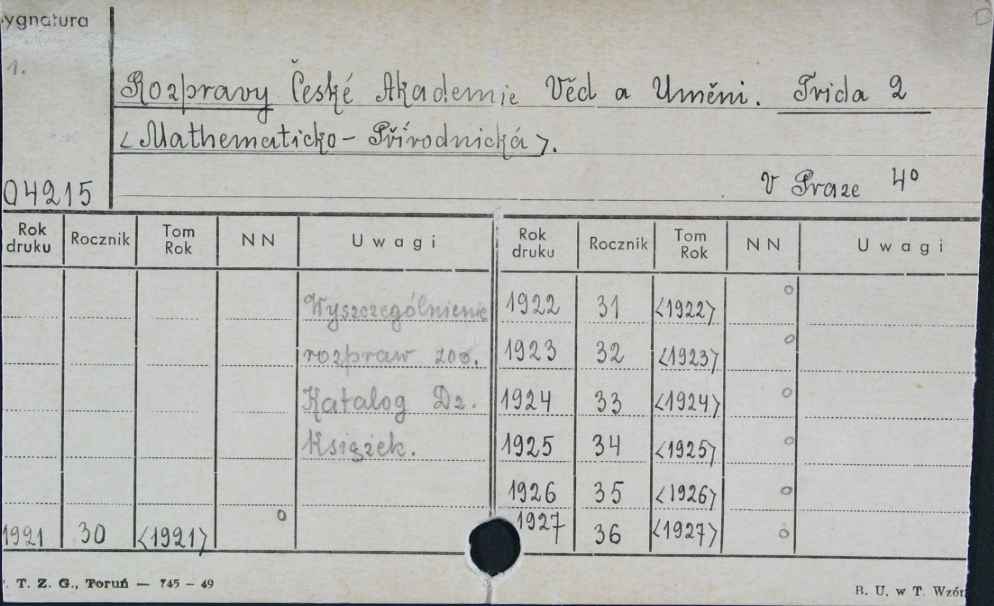 ygnatura
1.
Rozpravy České Akademie Věd a Uměni. Trida 2
<Mathematicko - Přírodnická>.
04215
V Praze 4°
Rok druku Rocznik Tom Rok NN Uwagi Rok druku Rocznik Tom Rok NN Uwagi
Wyszczególnienie 1922 31 <1922> o
rozpraw zob. 1923 32 <1923> o
Katalog Dz. 1924 33 <1924> o
Książek. 1925 34 <1925> o
1926 35 <1926> o
1921 30 <1921> o 1927 36 <1927> o
. T. Z. G., Toruń — 745 - 49
B. U. w T. Wzór